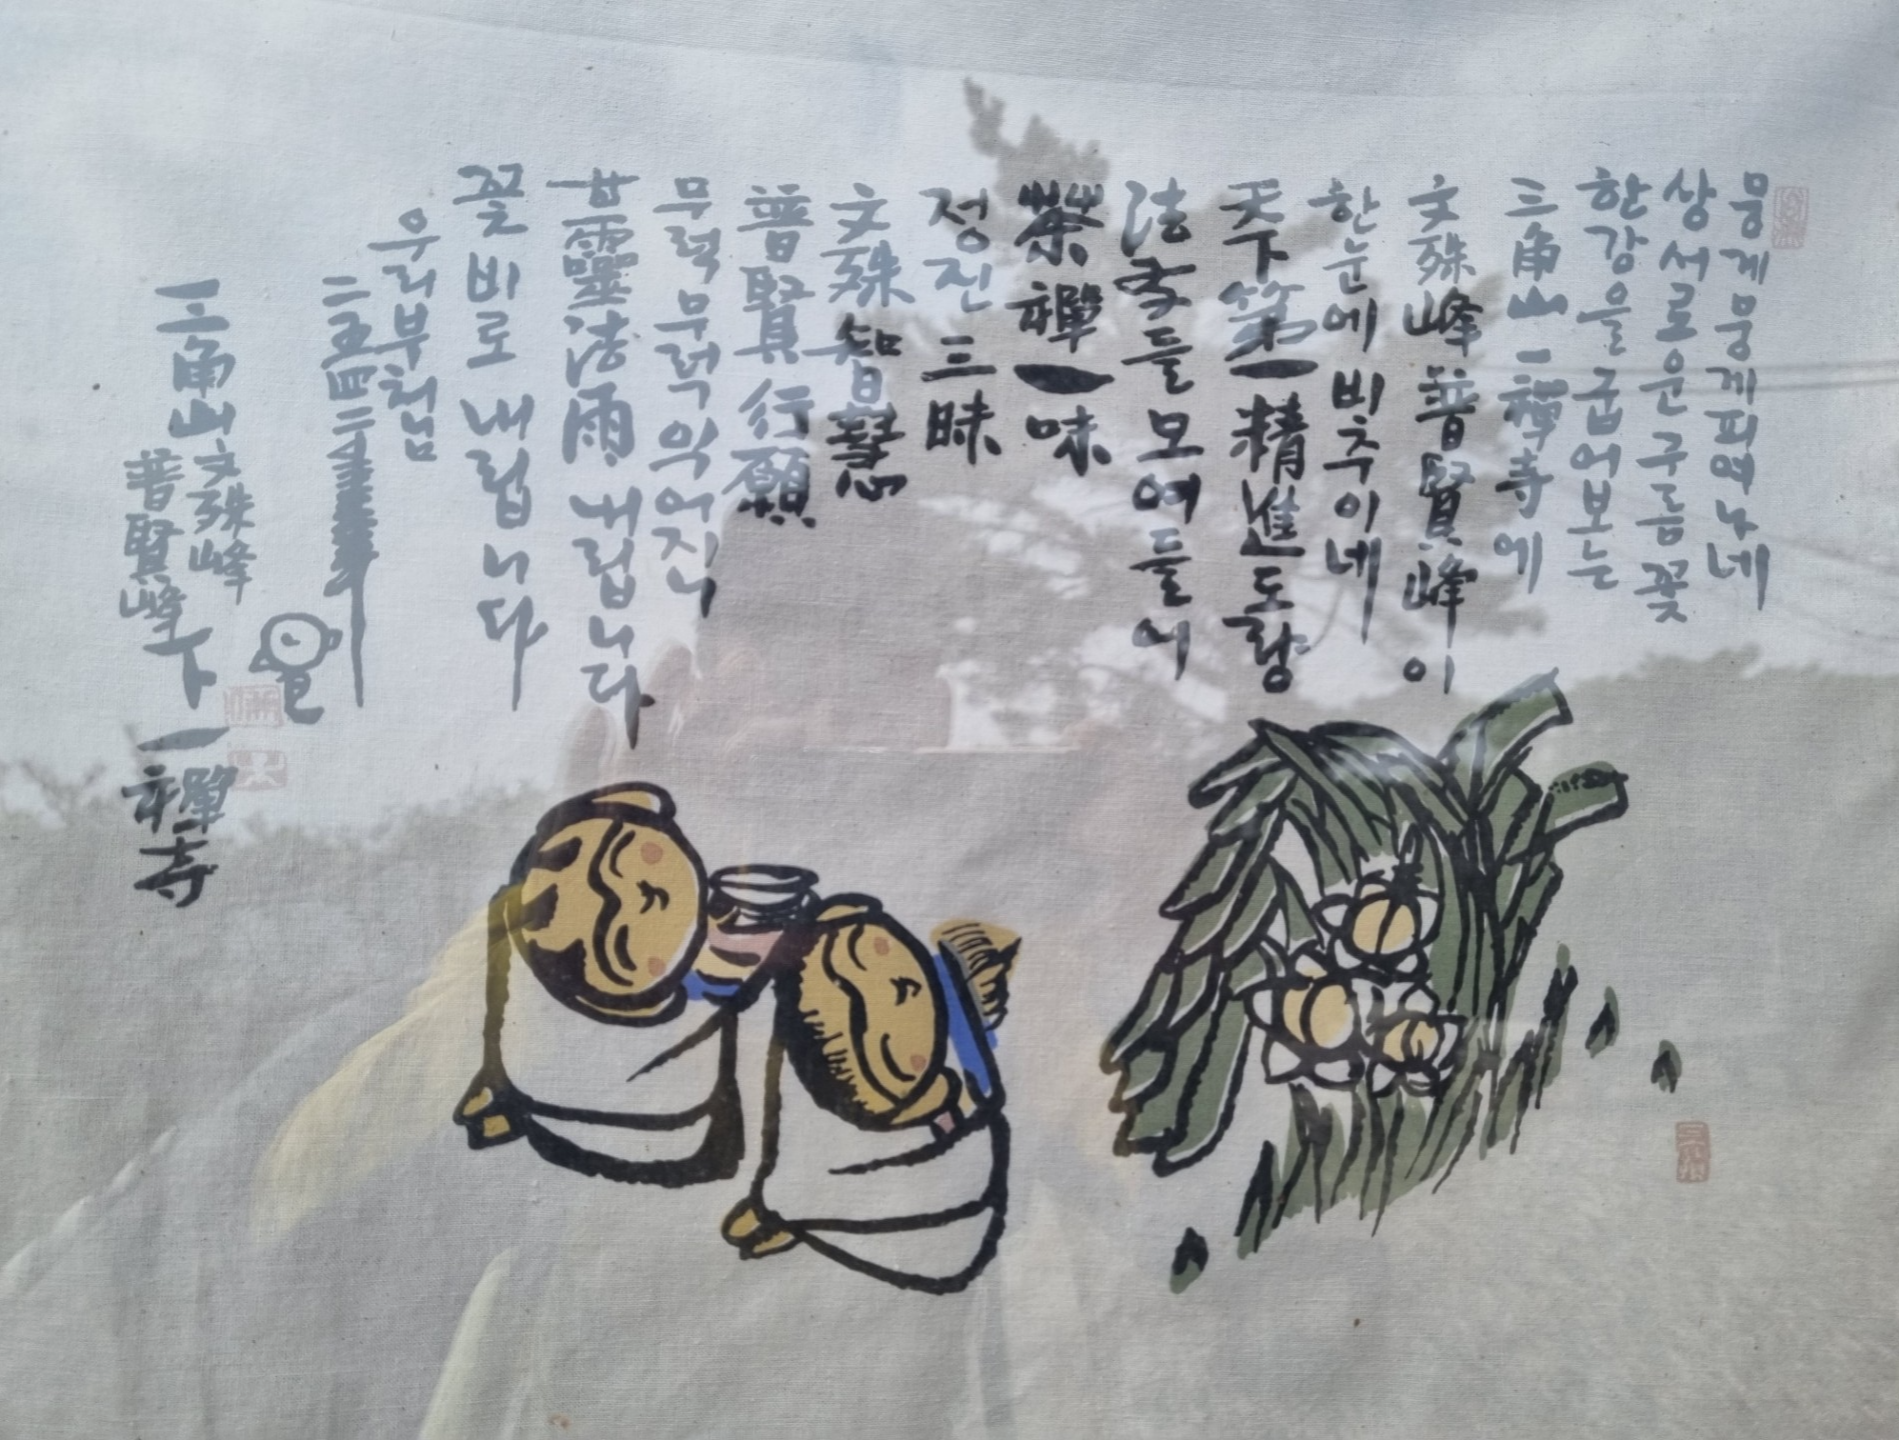 뭉게뭉게피여나네
상서로운구름꽃
한강을굽어보는
三角山一禪寺에
文殊峰普賢峰이
한눈에비추이네
天下第一精進도량
法友들모여들어
茶禪一味
정진三昧
文殊智慧
普賢行願
무럭무럭익어지니
甘靈法雨내립니다
꽃비로내립니다
우리부처님
二五四二
三角山文殊峰
普賢峰下一禪寺